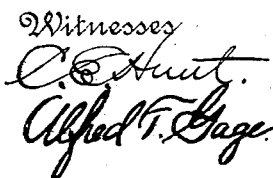 Witnesses
C. E. Hunt.
Alfred T. Gage.